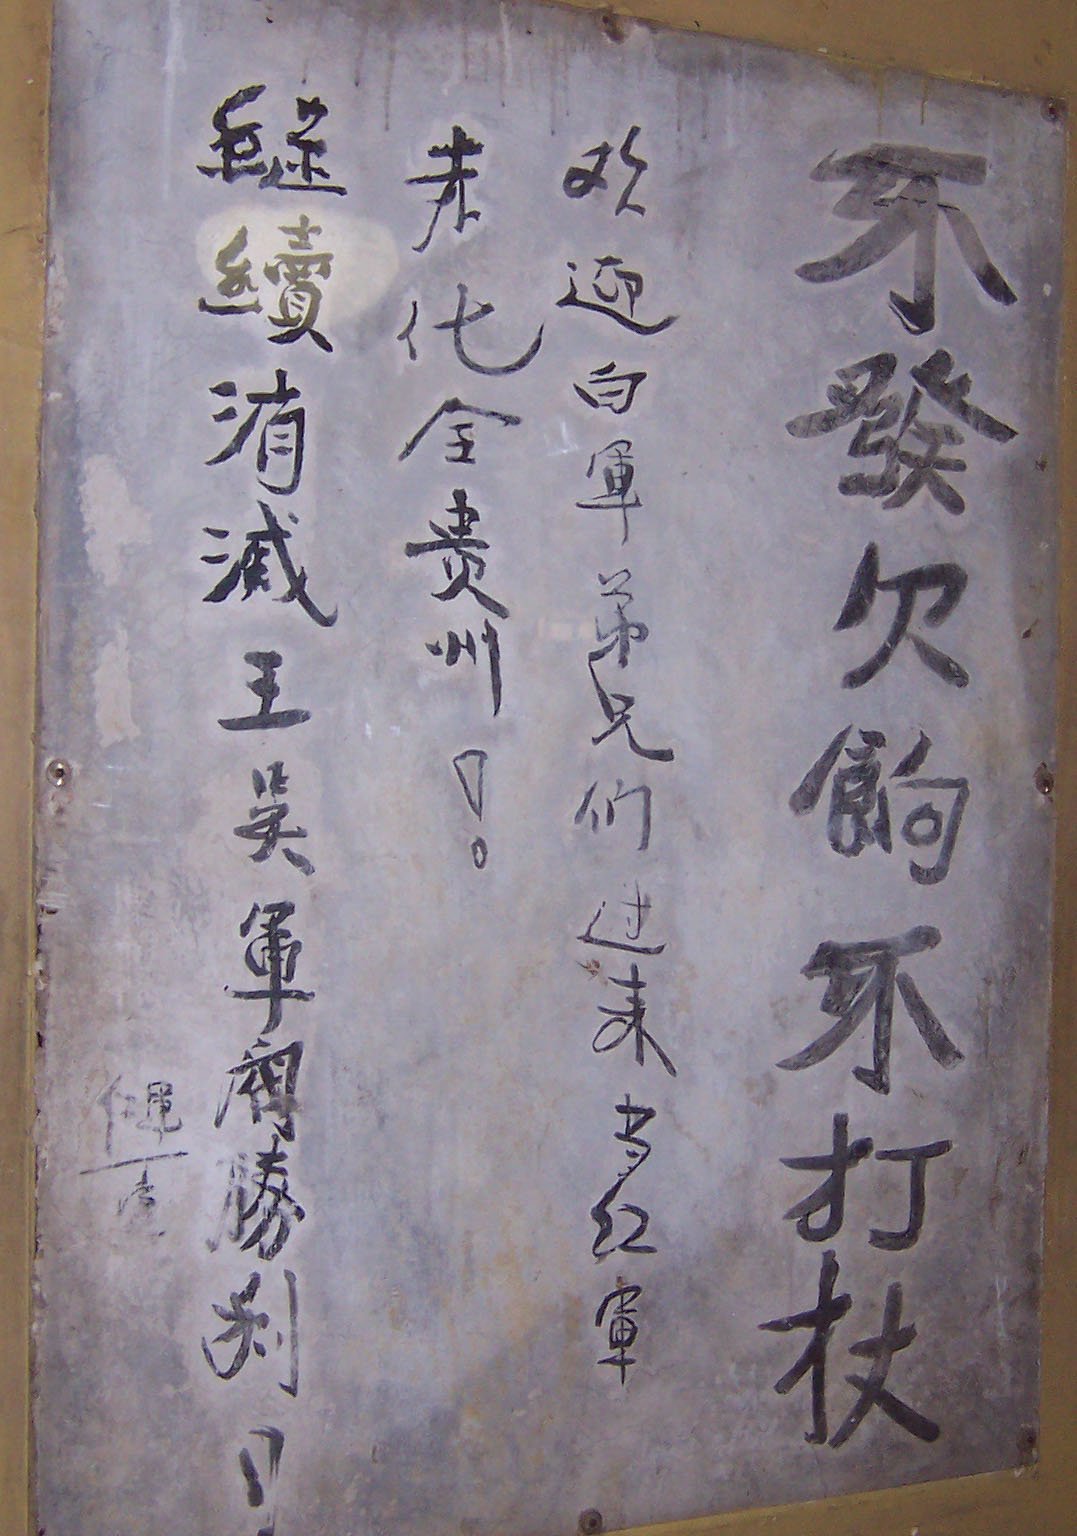 不發欠餉不打杖
欢迎白軍弟兄们过来当红軍
赤化全贵州！。
継續消滅王吴軍閥勝利！